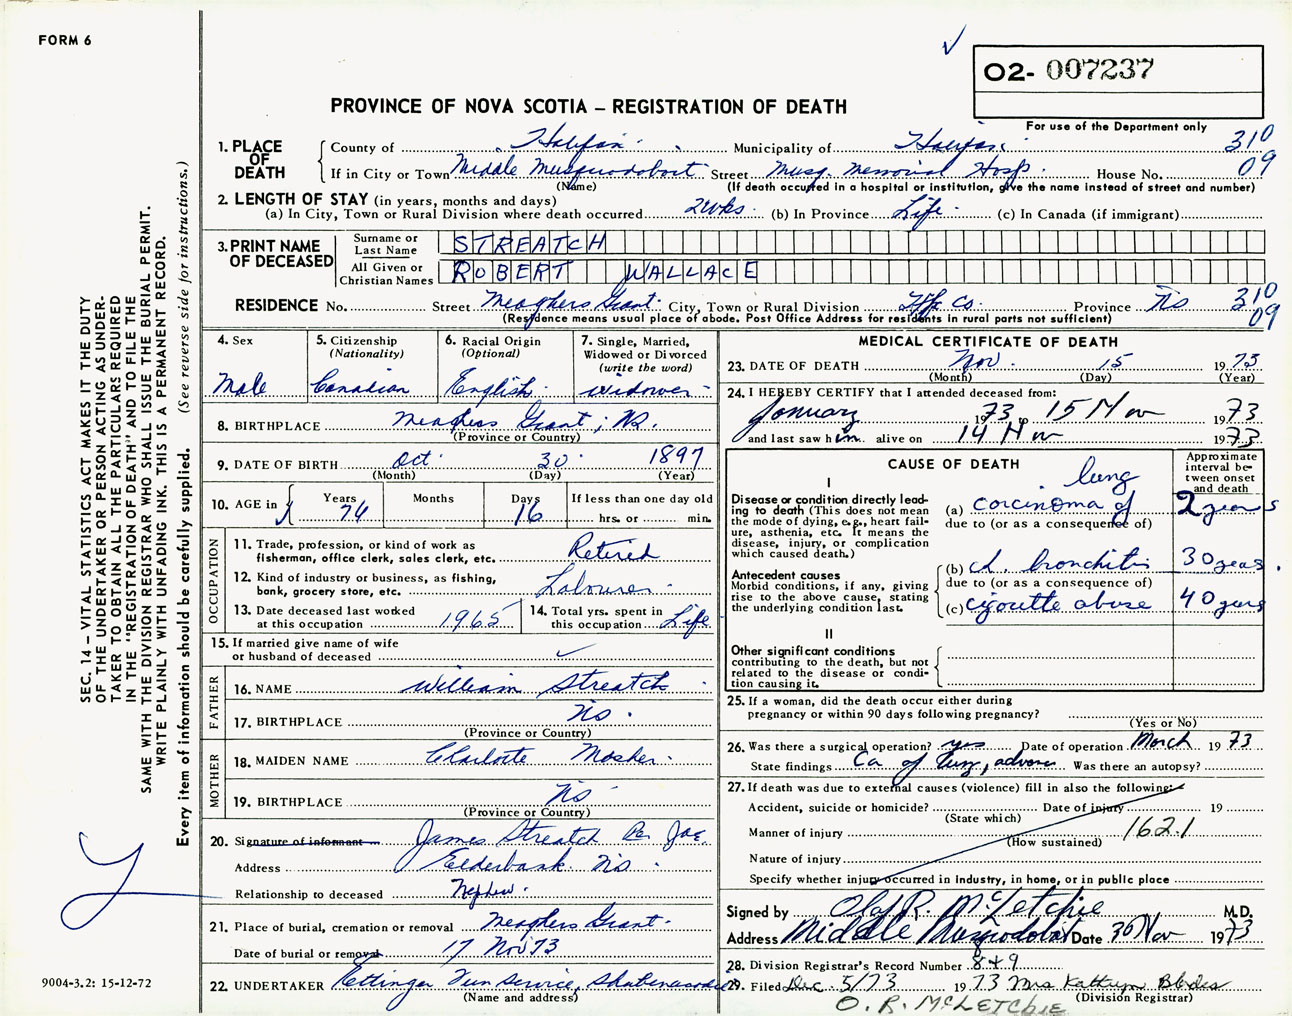 FORM 6
02- 007237
PROVINCE OF NOVA SCOTIA – REGISTRATION OF DEATH
For use of the Department only
1. PLACE OF DEATH
County of Halifax Municipality of Halifax 310
If in City or Town Middle Musquodoboit Street Musq. Memorial Hosp. House No. 09
(Name) (If death occurred in a hospital or institution, give the name instead of street and number)
2. LENGTH OF STAY (in years, months and days)
(a) In City, Town or Rural Division where death occurred 2 wks. (b) In Province Life. (c) In Canada (if immigrant)
3. PRINT NAME OF DECEASED
Surname or Last Name STREATCH
All Given or Christian Names ROBERT WALLACE
RESIDENCE No. Street Meaghers Grant. City, Town or Rural Division Hfx Co. Province NS 310
(Residence means usual place of abode. Post Office Address for residents in rural parts not sufficient) 09
4. Sex
Male
5. Citizenship
(Nationality)
Canadian
6. Racial Origin
(Optional)
English
7. Single, Married,
Widowed or Divorced
(write the word)
widower
8. BIRTHPLACE Meaghers Grant, NS.
(Province or Country)
9. DATE OF BIRTH Oct 30 1897
(Month) (Day) (Year)
10. AGE in
Years
76
Months
Days
16
If less than one day old
hrs. or min.
OCCUPATION
11. Trade, profession, or kind of work as
fisherman, office clerk, sales clerk, etc. Retired
12. Kind of industry or business, as fishing,
bank, grocery store, etc. Labourer
13. Date deceased last worked
at this occupation 1965
14. Total yrs. spent in
this occupation Life
15. If married give name of wife
or husband of deceased
FATHER
16. NAME William Streatch
17. BIRTHPLACE NS.
(Province or Country)
MOTHER
18. MAIDEN NAME Charlotte Mosher.
19. BIRTHPLACE NS
(Province or Country)
20. Signature of informant James Streatch Per
Address Elderbank. NS
Relationship to deceased Nephew.
21. Place of burial, cremation or removal Meaghers Grant.
Date of burial or removal 17 Nov 73
22. UNDERTAKER Ettinger Fun Service, Shubenacadie
(Name and address)
MEDICAL CERTIFICATE OF DEATH
23. DATE OF DEATH Nov. 15 1973
(Month) (Day) (Year)
24. I HEREBY CERTIFY that I attended deceased from:
January 1973 15 Nov 1973
and last saw him alive on 14 Nov 1973
CAUSE OF DEATH
Approximate
interval be-
tween onset
and death
I
Disease or condition directly lead-
ing to death (This does not mean
the mode of dying, e.g., heart fail-
ure, asthenia, etc. It means the
disease, injury, or complication
which caused death.)
(a) carcinoma of lung 2 years
due to (or as a consequence of)
Antecedent causes
Morbid conditions, if any, giving
rise to the above cause, stating
the underlying condition last.
(b) ch. bronchitis 30 years.
due to (or as a consequence of)
(c) cigarette abuse 40 years
II
Other significant conditions
contributing to the death, but not
related to the disease or condi-
tion causing it.
25. If a woman, did the death occur either during
pregnancy or within 90 days following pregnancy?
(Yes or No)
26. Was there a surgical operation? yes Date of operation March 1973
State findings Ca of lung, Was there an autopsy?
27. If death was due to external causes (violence) fill in also the following:
Accident, suicide or homicide? Date of injury 19
(State which)
Manner of injury 162.1
(How sustained)
Nature of injury
Specify whether injury occurred in industry, in home, or in public place
Signed by Olaf R. McLetchie M.D.
Address Middle Musquodoboit Date 30 Nov 1973
28. Division Registrar's Record Number 849
29. Filed Dec. 5/73 1973 Mrs Kathryn
(Division Registrar)
O. R. McLETCHIE
SEC. 14 – VITAL STATISTICS ACT MAKES IT THE DUTY
OF THE UNDERTAKER OR PERSON ACTING AS UNDER-
TAKER TO OBTAIN ALL THE PARTICULARS REQUIRED
IN THE "REGISTRATION OF DEATH" AND TO FILE THE
SAME WITH THE DIVISION REGISTRAR WHO SHALL ISSUE THE BURIAL PERMIT.
WRITE PLAINLY WITH UNFADING INK. THIS IS A PERMANENT RECORD.
Every item of information should be carefully supplied. (See reverse side for instructions.)
9004-3.2: 15-12-72